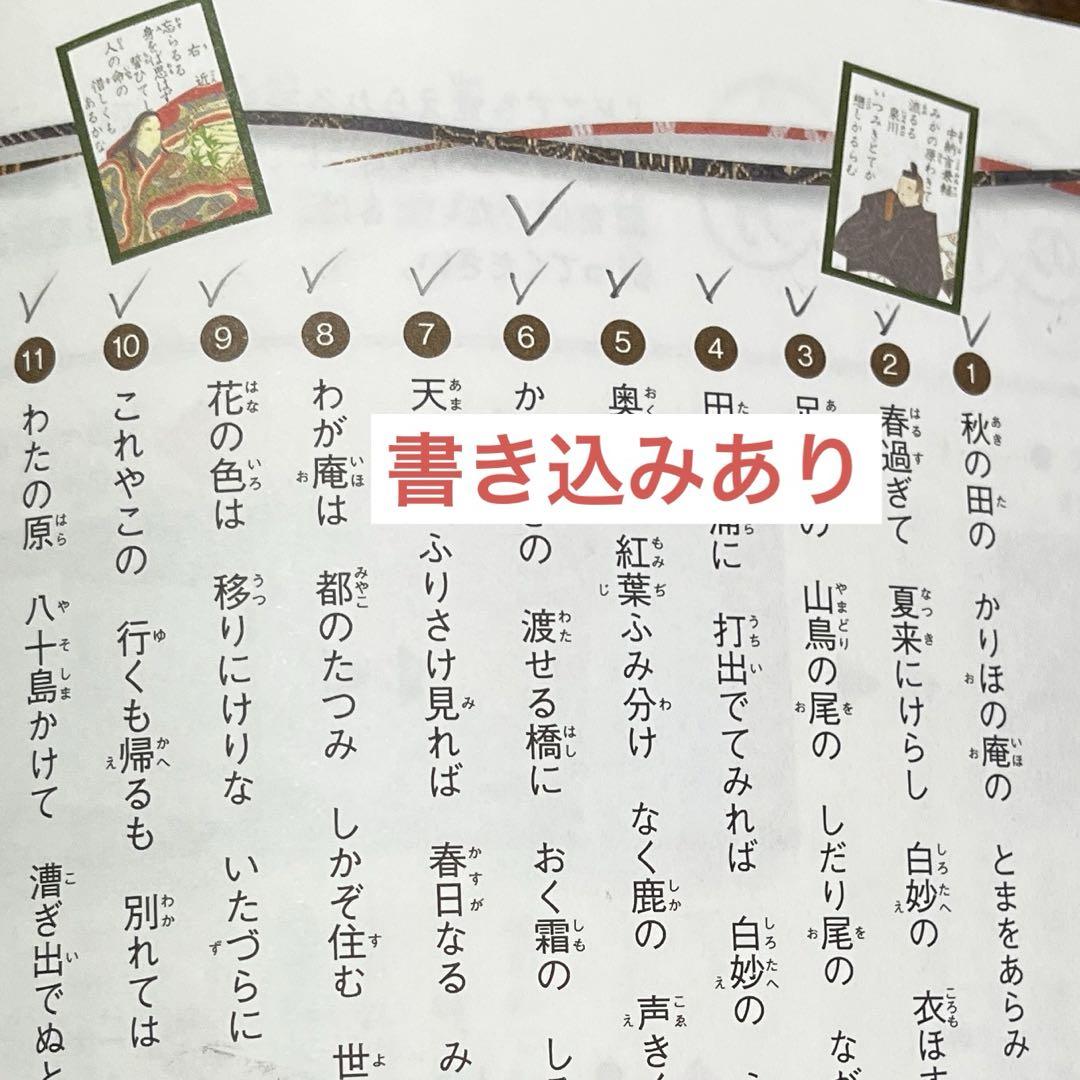 右近
忘らるる
身をば思はず
誓ひてし
人の命の
惜しくも
あるかな
中納言兼輔
みかの原わきて
流るる
泉川
いつみきとてか
恋しかるらむ
書き込みあり
1 秋の田の かりほの庵の とまをあらみ
2 春過ぎて 夏来にけらし 白妙の 衣ほす
3 の 山鳥の尾の しだり尾の なが
4 田 浦に 打出でてみれば 白妙の
5 奥 紅葉ふみ分け なく鹿の 声きく
6 か の 渡せる橋に おく霜の し
7 天 ふりさけ見れば 春日なる み
8 わが庵は 都のたつみ しかぞ住む 世
9 花の色は 移りにけりな いたづらに
10 これやこの 行くも帰るも 別れては
11 わたの原 八十島かけて 漕ぎ出でぬと